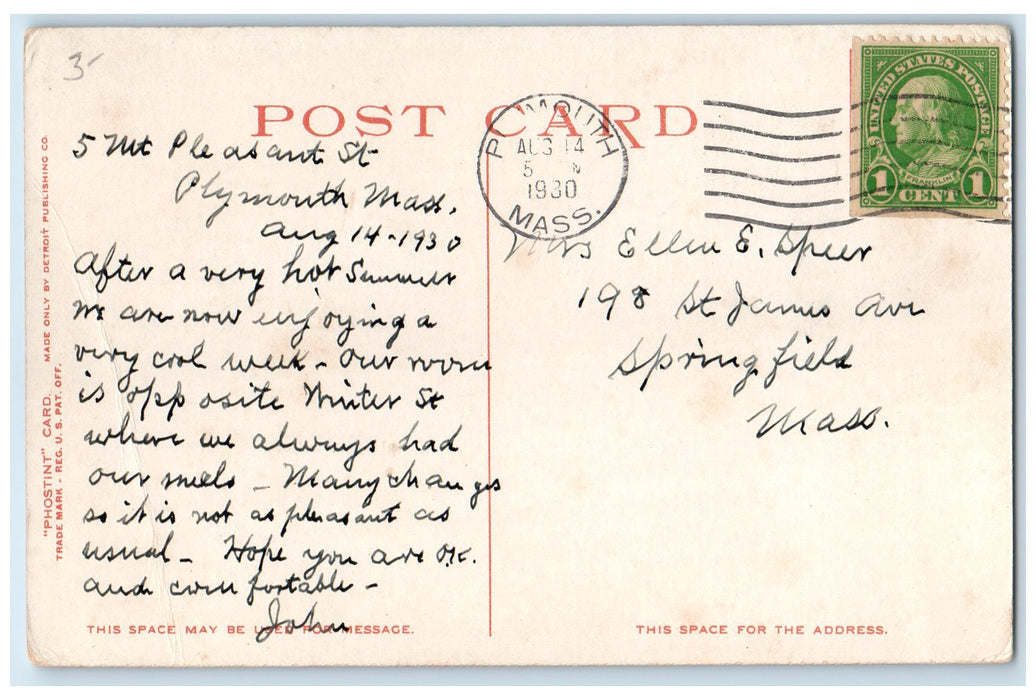 3-
POST CARD
PLYMOUTH
AUG 14
5
1930
MASS.
UNITED STATES POSTAGE
FRANKLIN
1 CENT 1
5 Mt Pleasant St
Plymouth Mass.
Aug 14-1930
After a very hot Summer
we are now enjoying a
very cool week - Our room
is opposite Winter St
where we always had
our meels - Many changes
so it is not as pleasant as
usual - Hope you are O.K.
and comfortable -
John
Mrs Ellen E. Speer
198 St James Ave
Springfield
Mass.
"PHOSTINT" CARD. MADE ONLY BY DETROIT PUBLISHING CO.
TRADE MARK - REG. U. S. PAT. OFF.
THIS SPACE MAY BE USED FOR MESSAGE.
THIS SPACE FOR THE ADDRESS.